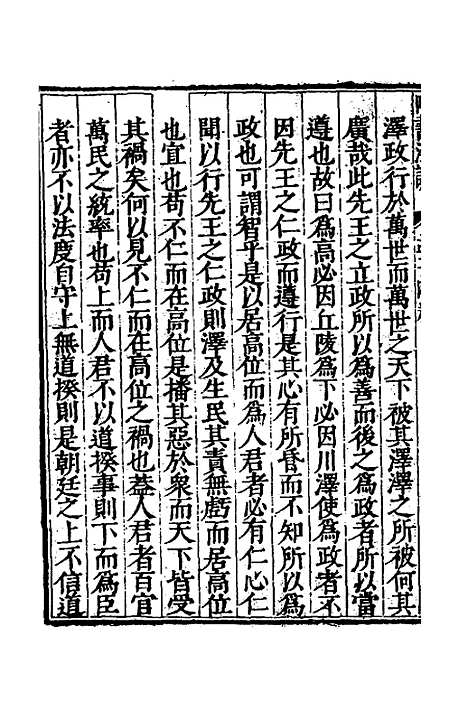 澤政行於萬世而萬世之天下被其澤澤之所被何其
廣哉此先王之立政所以爲善而後之爲政者所以當
遵也故曰爲高必因丘陵爲下必因川澤使爲政者不
因先王之仁政而遵行是其心有所昏而不知所以爲
政也可謂智乎是以居高位而爲人君者必有仁心仁
聞以行先王之仁政則澤及生民其責無虧而居高位
也宜也苟不仁而在高位是播其惡於衆而天下皆受
其禍矣何以見不仁而在高位之禍也葢人君者百官
萬民之統率也苟上而人君不以道揆事則下而爲臣
者亦不以法度自守上無道揆則是朝廷之上不信道